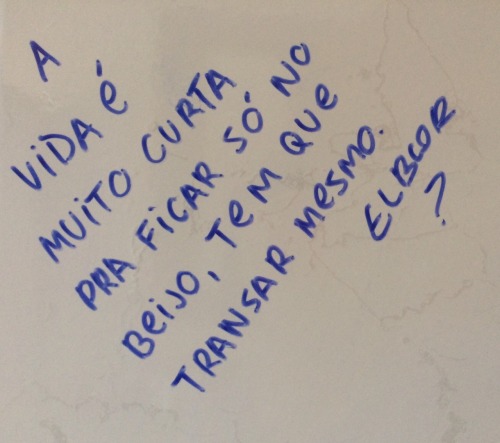 A
VIDA É
MUITO CURTA
PRA FICAR SÓ NO
BEIJO, TEM QUE
TRANSAR MESMO.
ELBCOR
?